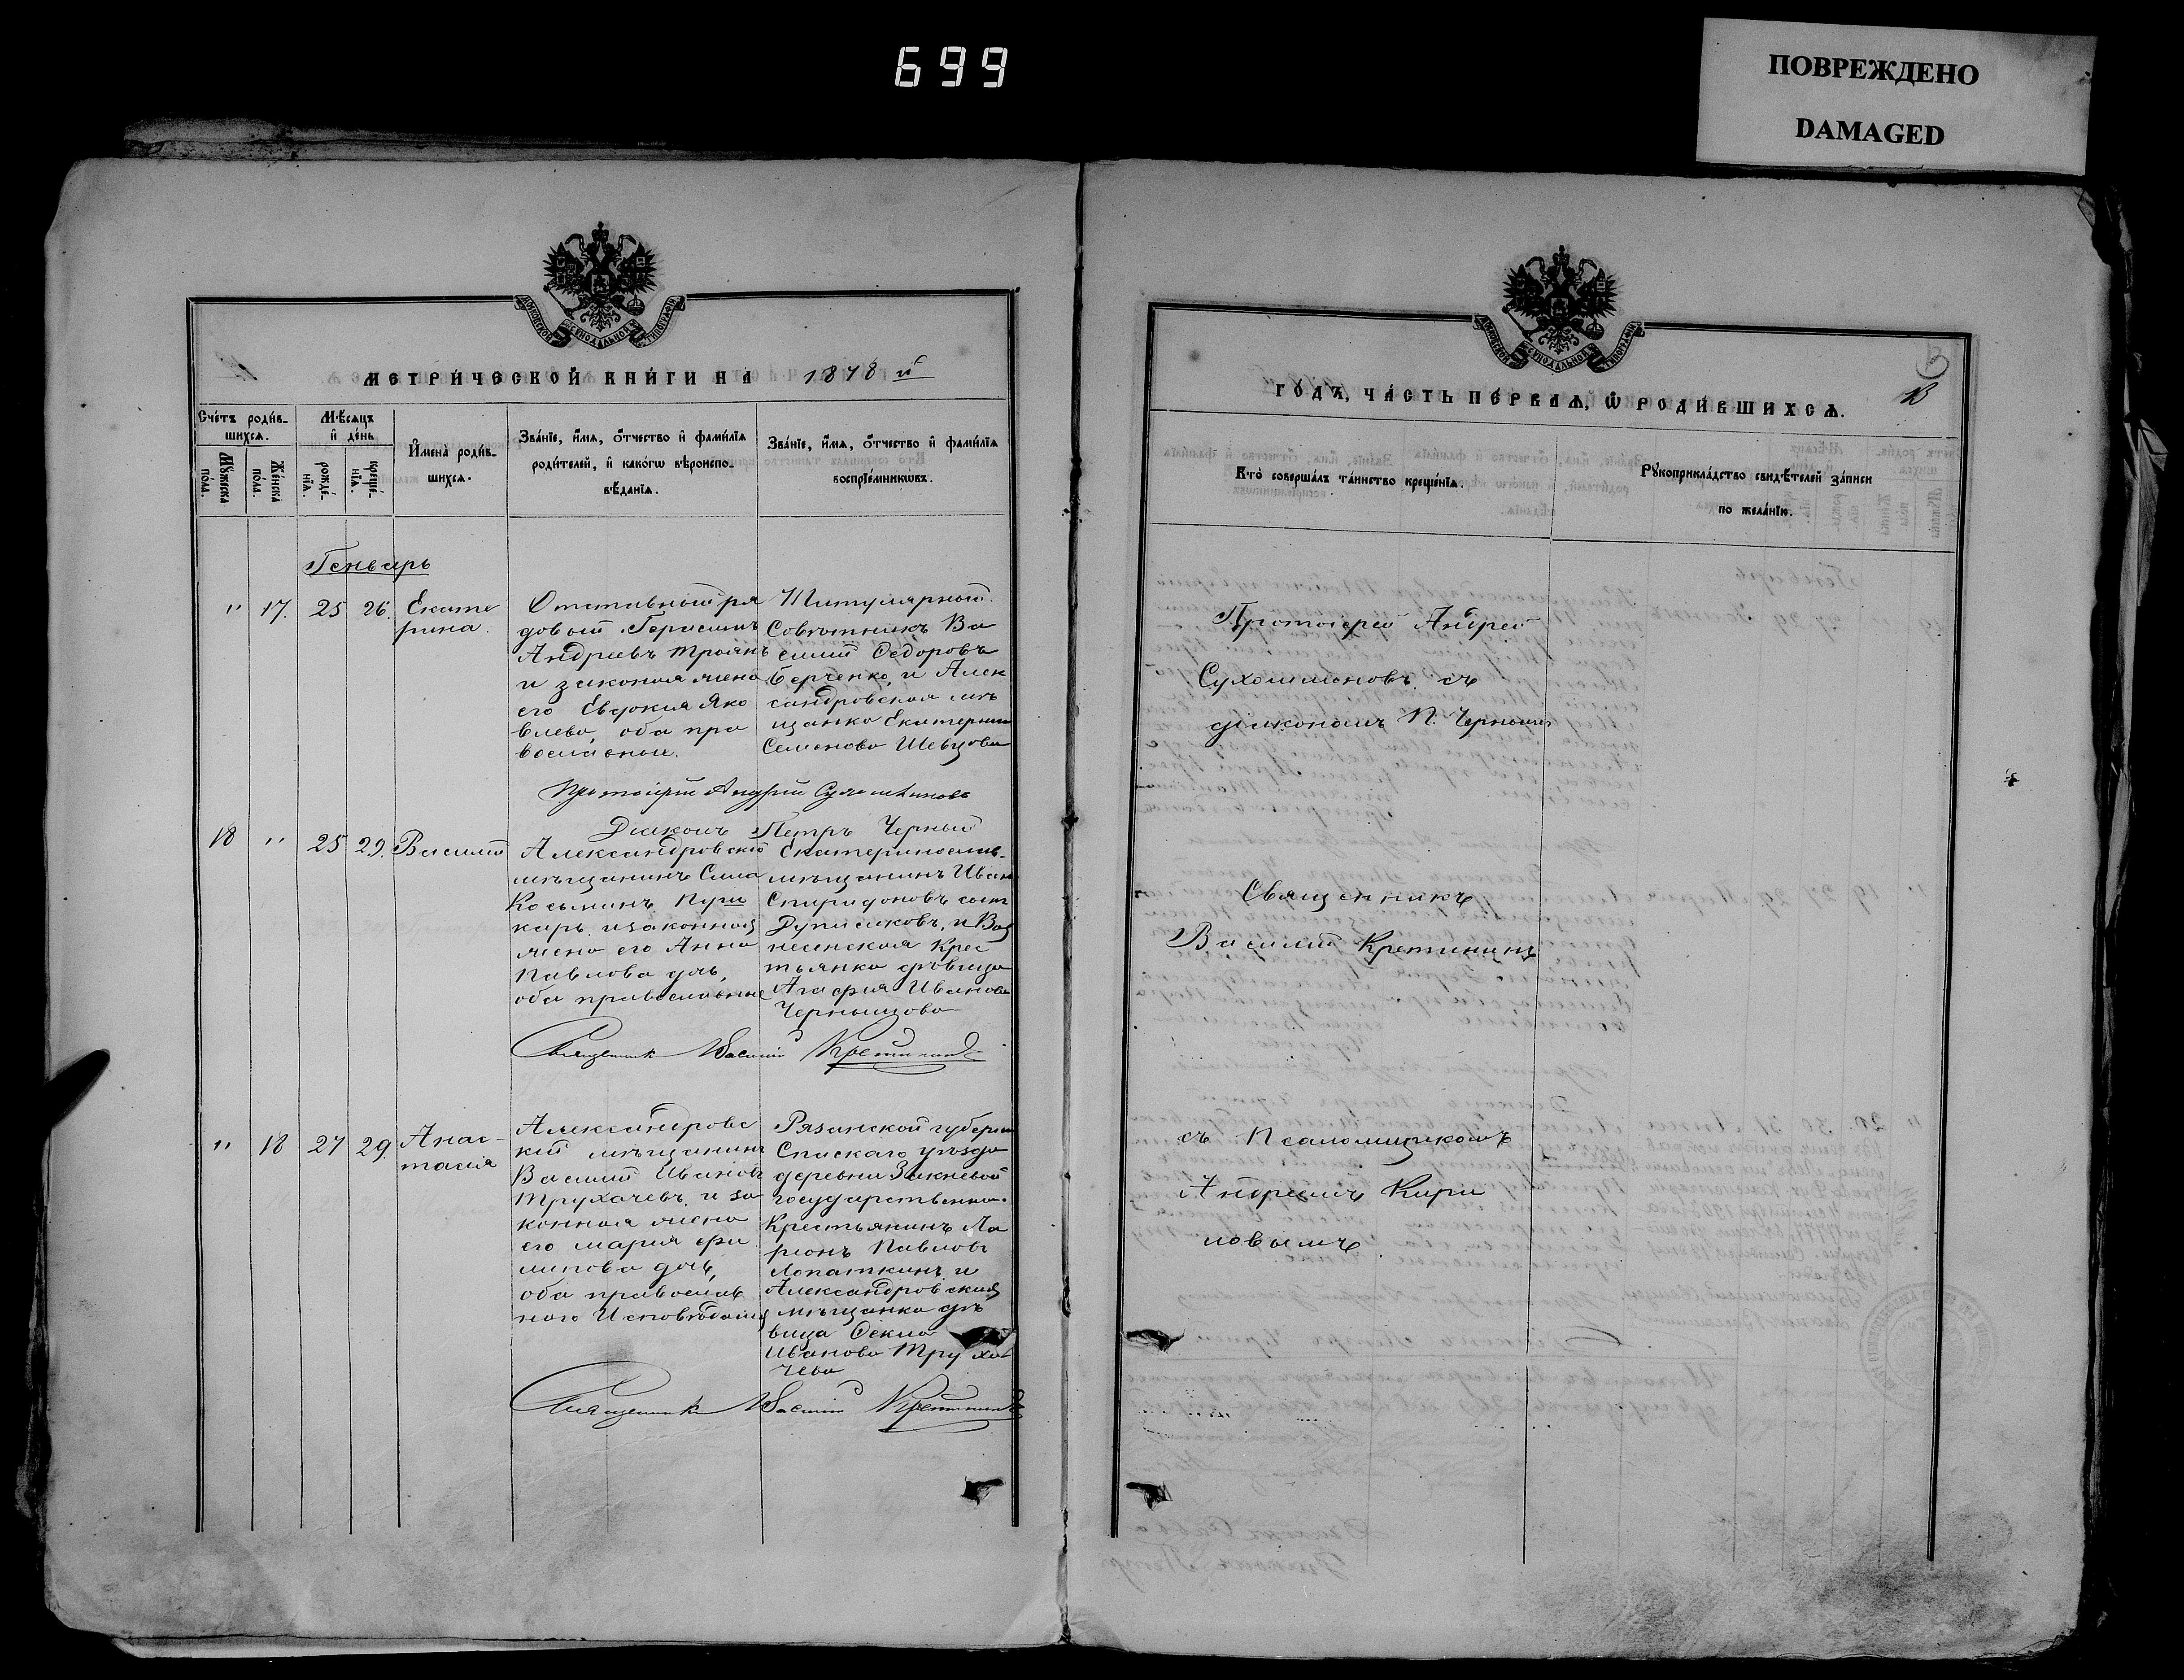 699
ПОВРЕЖДЕНО
DAMAGED
МОСКОВСКОЙ СѴНОДАЛЬНОЙ ТИПОГРАФІИ
МЕТРИ́ЧЕСКОЙ КНИ́ГИ НА 1878 й
Сче́тъ роди́в-
шихся.
Мꙋ́жеска по́ла.
Же́нска по́ла.
Мѣ́сяцъ
и҆ де́нь
рожде́-
нїѧ.
креще́-
нїѧ.
И҆мена̀ роди́в-
шихсѧ.
Зва́нїе, и҆́мѧ, ѻ҆́тчество и҆ фами́лїѧ
роди́телей, и҆ како́гѡ вѣроиспо-
вѣ́данїѧ.
Зва́нїе, и҆́мѧ, ѻ҆́тчество и҆ фами́лїѧ
воспрїе́мникѡвъ.
Генварь
" 17. 25 26. Екате
рина.
Отставной ря
довой Герасимъ
Андреевъ Троянъ
и законая жена
его Евдокия Яко
влева, оба пра
вославные.
Титулярный
Советникъ Ва
силий Федоровъ
Берченко, и Алек
сандровская мѣ
щанка Екатерина
Семенова Шевцова
Протоіерей Андрей Сухомлиновъ
Диаконъ Петръ Черный
18 " 25 29. Василий
Александровский
мѣщанинъ Сила
Косьминъ
карь и законная
жена его Анна
Павлова дочь,
оба православные
Екатеринослав.
мѣщанинъ Иван
Спиридоновъ сынъ
и Воз
несенская Крес
тьянка дѣвица
Агафия Иванова
Чернышова
Священник Василий Кретининъ
" 18 27 29. Анас-
тасия
Александровс
кий мѣщанинъ
Василий Иванов
Трухачевъ и за
конная жена
его Мария Фи
липова дочь,
оба православ
наго Исповѣдания
Рязанской губерни
Спаскаго уѣзда
деревни
государственно.
Крестьянинъ Ла
рионъ Павловъ
Лопаткинъ и
Александровская
мѣщанка дѣ
вица Фекла
Иванова Труха
чева
Священник Василий Кретининъ
МОСКОВСКОЙ СѴНОДАЛЬНОЙ ТИПОГРАФІИ
ГО́ДЪ, ЧА́СТЬ ПЕ́РВАѦ, Ѡ҆ РОДИ́ВШИХСѦ.
Кто̀ соверша́лъ та́инство креще́нїѧ.
Рꙋкоприкла́дство свидѣ́телей за́писи
по жела́нїю.
Протоіерей Андрей
Сухомлиновъ съ
диакономъ П. Чернымъ
Священникъ
Василий Кретининъ
съ Псаломщикомъ
Андреемъ Кири
ловымъ.